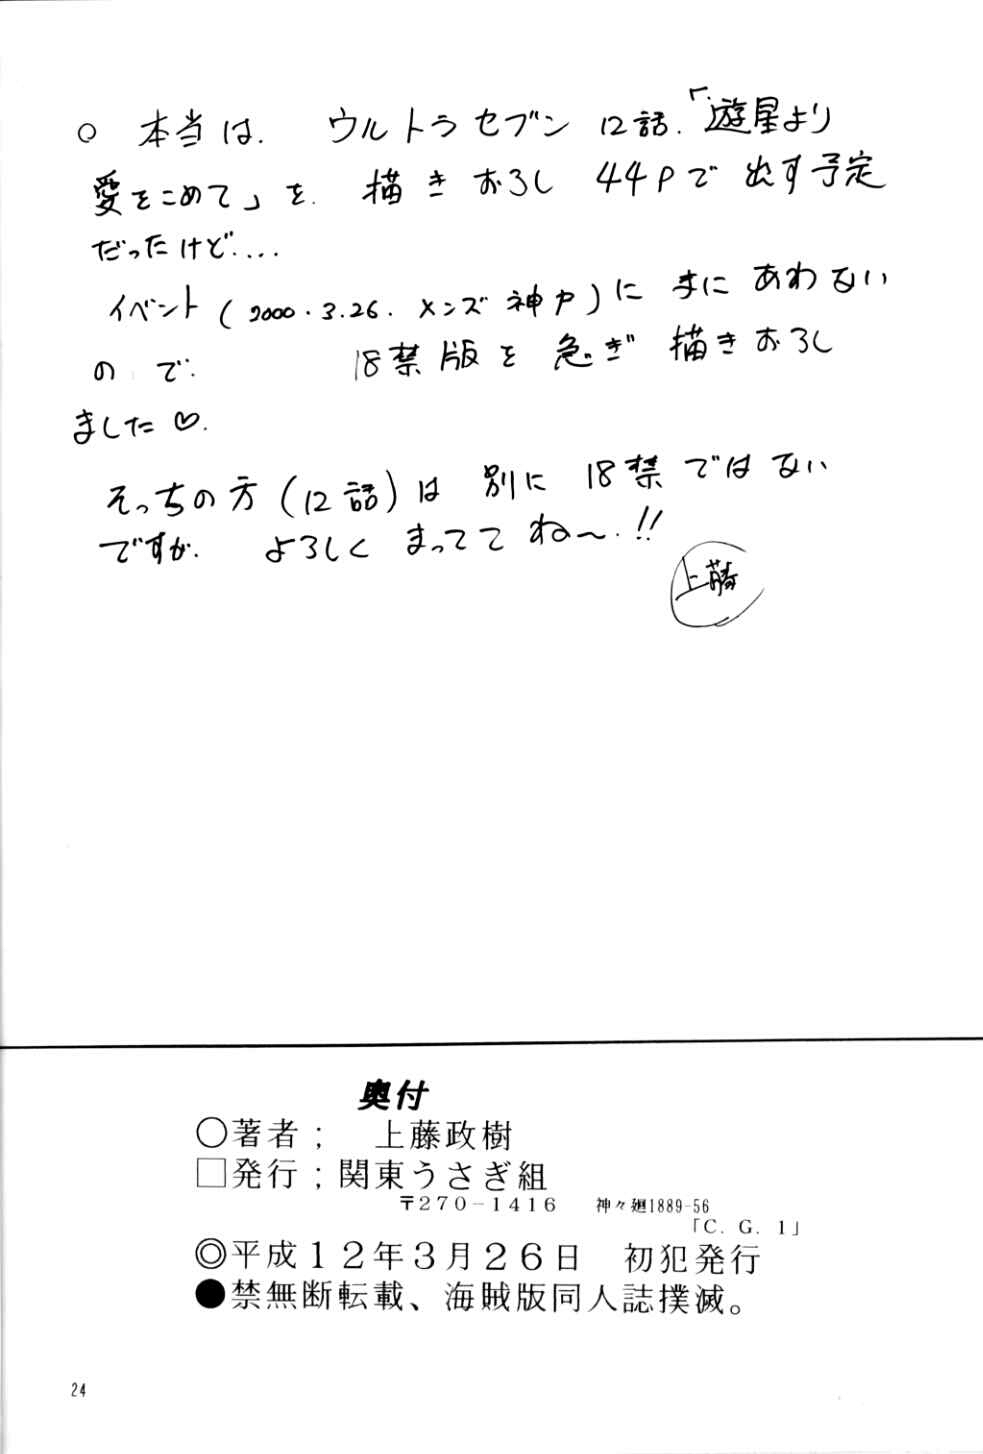 ○ 本当は. ウルトラセブン 12話.「遊星より
愛をこめて」を. 描きおろし 44Pで 出す予定
だったけど....
イベント(2000.3.26.メンズ神戸)に まにあわない
ので. 18禁版を 急ぎ 描きおろし
ました♡.
そっちの方(12話)は 別に 18禁ではない
ですが. よろしく まっててね〜.!!
上藤
奥付
○著者； 上藤政樹
□発行；関東うさぎ組
〒270-1416 神々廻1889-56
「C. G. 1」
◎平成12年3月26日 初犯発行
●禁無断転載、海賊版同人誌撲滅。
24